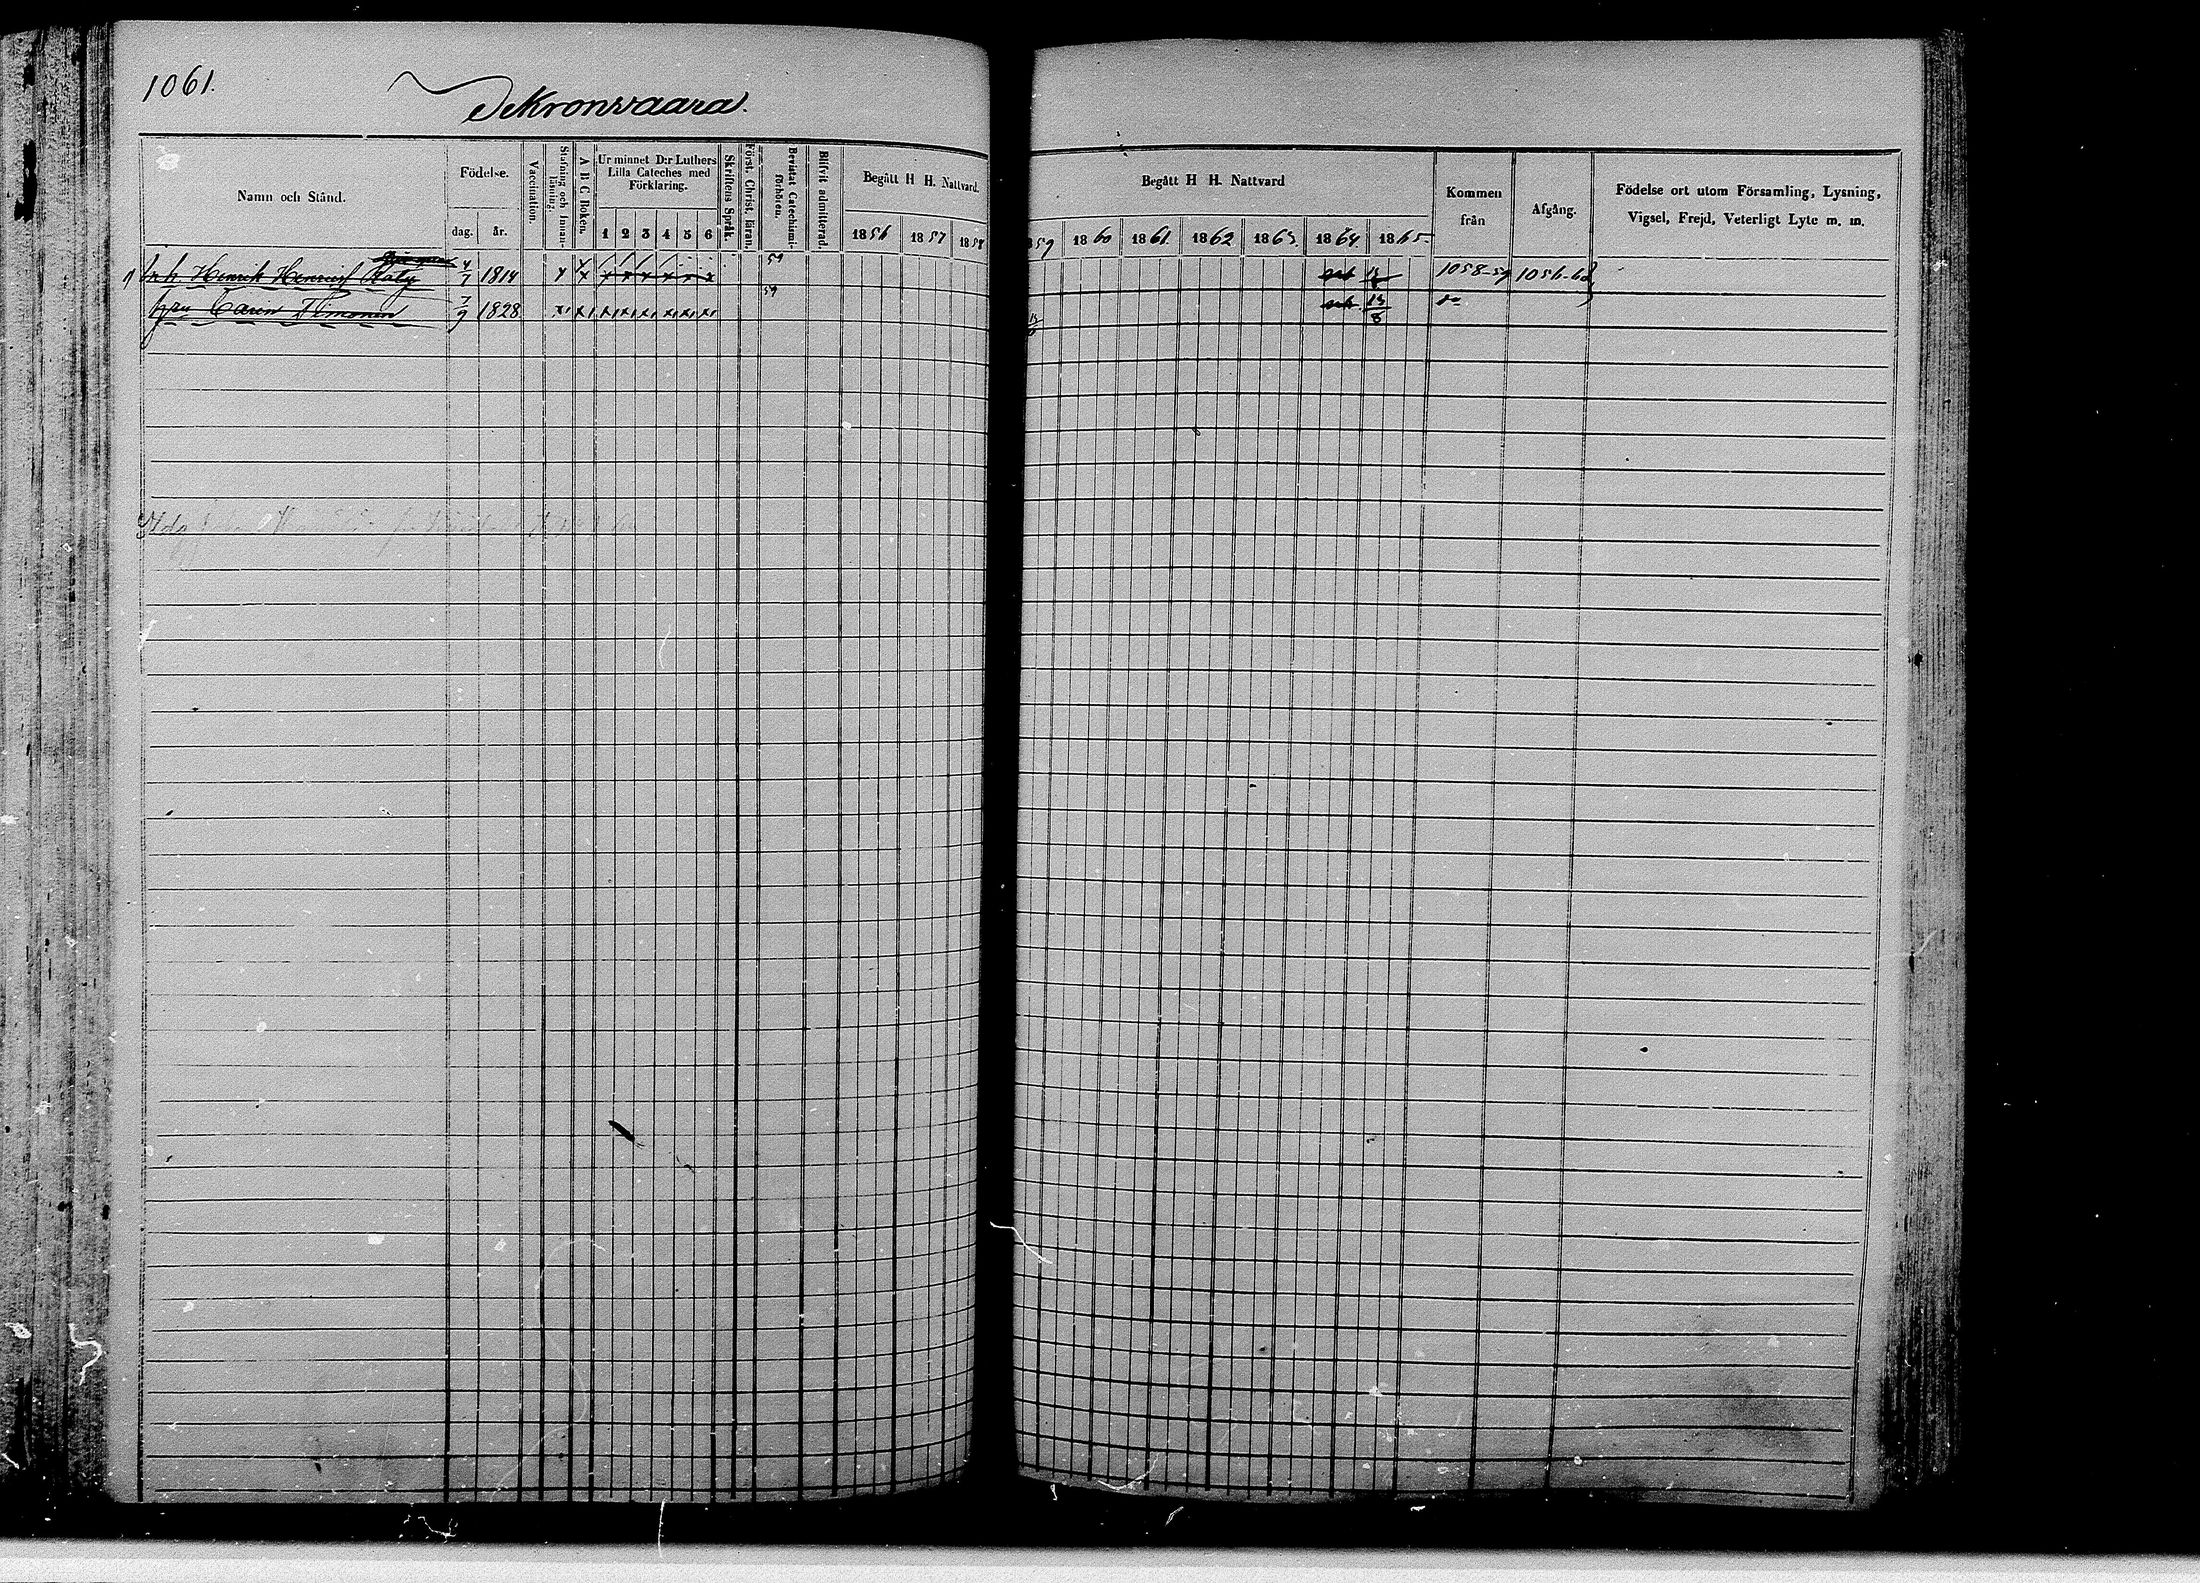 1061.
Namn och Stånd.
Födelse.
dag.
år.
Vaccination.
Stafning och Innan-
läsning.
A B C Boken.
Ur minnet D:r Luthers
Lilla Cateches med
Förklaring.
1 2 3 4 5 6
Skriftens Språk.
Först. Christ. läran.
Bevistat Catechismi-
förhören.
Blifvit admitterad.
Begått H H. Nattvard.
1856 1857 1858
Henrik Henriss Räty 4/7 1814 59
hru Carin Simonen 7/9 1828 59
Begått H H. Nattvard
1859 1860 1861. 1862 1863. 1864. 1865.
Kommen
från
Afgång.
Födelse ort utom Församling, Lysning,
Vigsel, Frejd, Veterligt Lyte m. m.
1058-59 1056-62
13/8